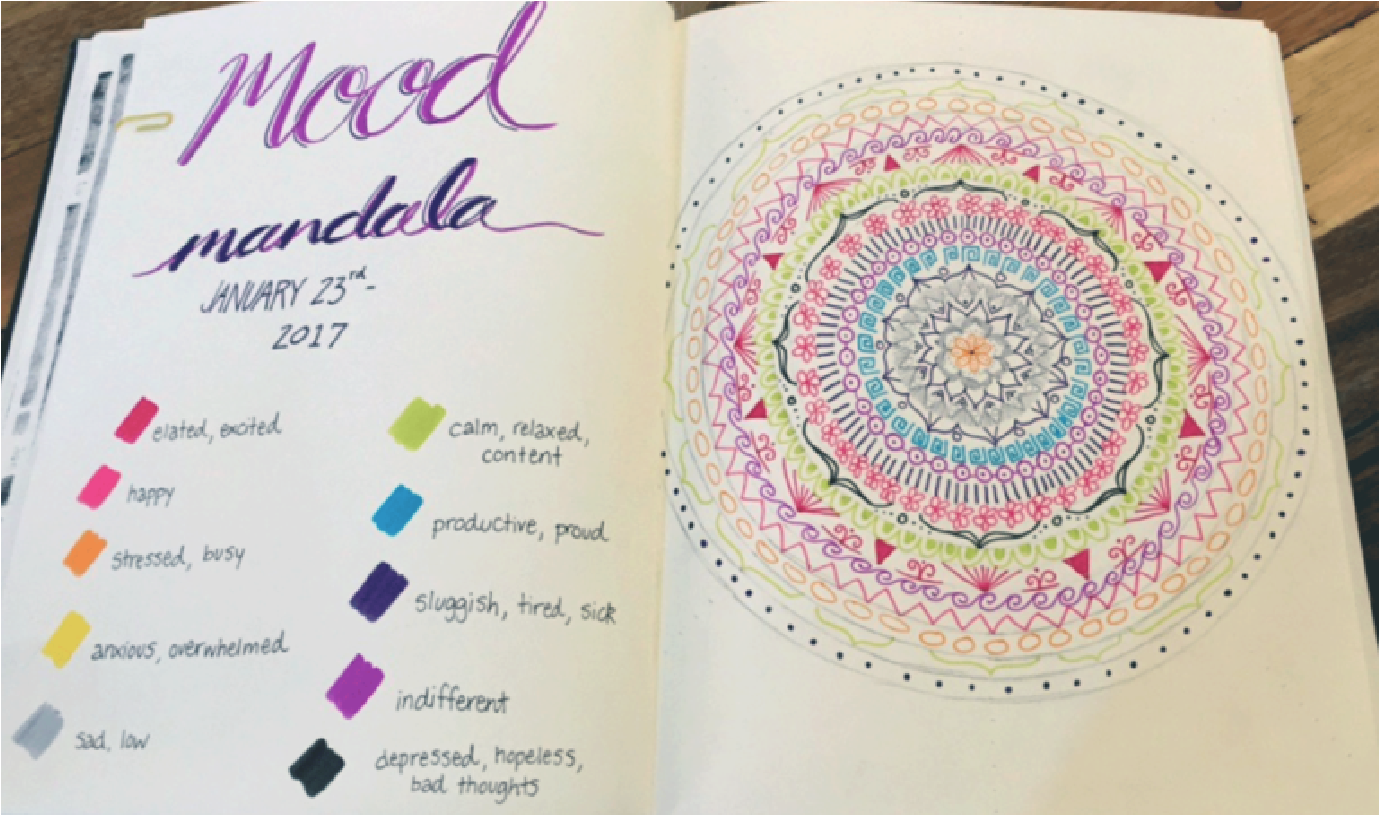 Mood
mandala
JANUARY 23rd-
2017
elated, excited
happy
stressed, busy
anxious, overwhelmed
sad, low
calm, relaxed,
content
productive, proud
sluggish, tired, sick
indifferent
depressed, hopeless,
bad thoughts